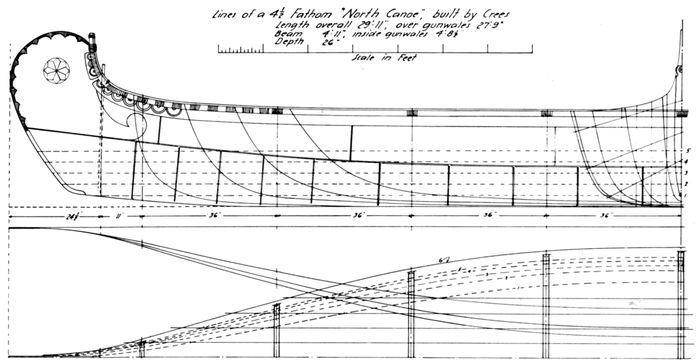 Lines of a 4½ Fathom "North Canoe", built by Crees
Length overall 29'·11", over gunwales 27'·9"
Beam 4'·11", inside gunwales 4'·8½"
Depth 26"
Scale in Feet
11" 36" 36" 36" 36"